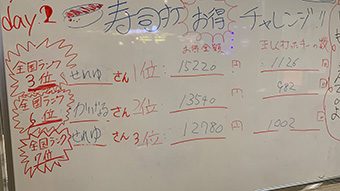 day 2 寿司打 お得 チャレンジ!!
お得金額 正しくうったキーの数
全国ランク 3位 せれゆ さん 1位: 15220 円 1126
全国ランク 6位 さん 2位: 13540 円 982
全国ランク 7位 せれゆ さん 3位: 12780 円 1002